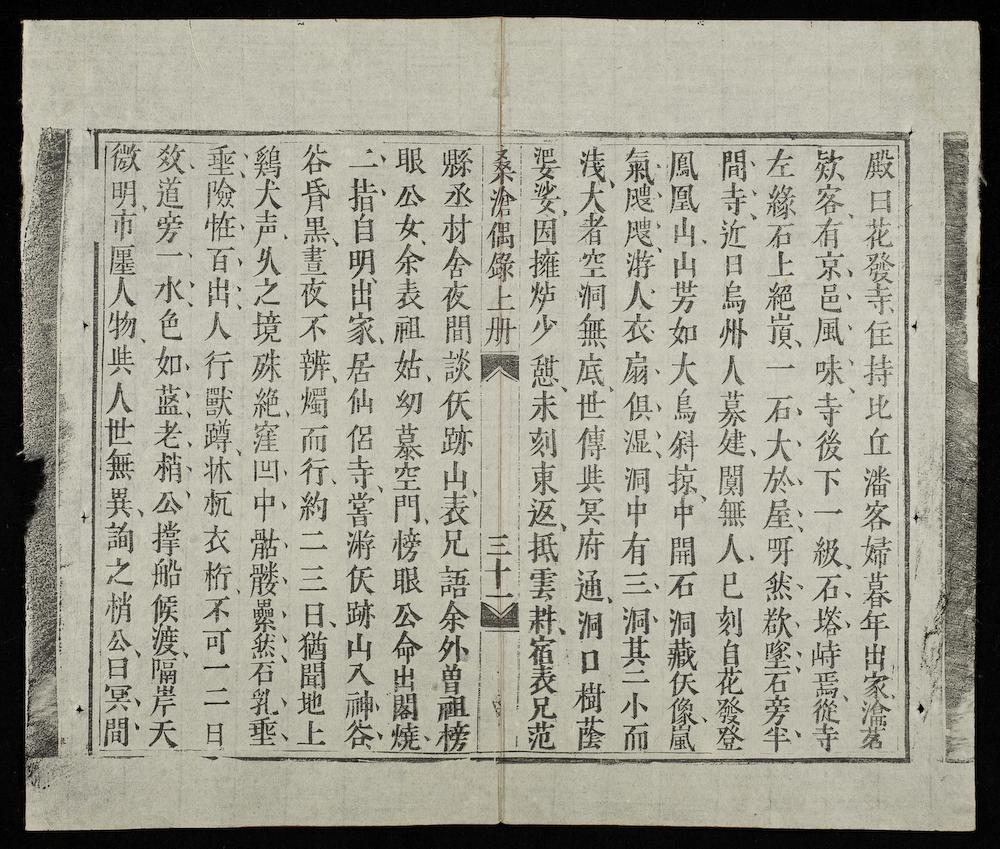 殿曰花發寺、住持比丘潘客婦暮年出家、瀹茗
欵客、有京邑風味、寺後下一級、石塔峙焉、從寺
左緣石上絕嵿、一石大於屋、呀然欲墜、石旁半
間寺、近日烏州人募建、闃無人、巳刻自花發登
鳳凰山、山芳如大鳥斜掠、中開石洞藏仸像、嵐
氣飕飕、游人衣扇俱湿、洞中有三洞其二小而
淺、大者空洞無底、世傳與冥府通、洞口樹蔭
婆娑、因擁炉少憇、未刻東返、抵雲耕宿表兄范
桑滄偶錄上册 三十一
縣丞材舍夜間談仸跡山、表兄語余外曽祖榜
眼公女、余表祖姑、幼慕空門、榜眼公命出閣、燒
二指自明、出家居仙侶寺、嘗游仸跡山入神谷、
谷昏黒、晝夜不辨、燭而行、約二三日、猶聞地上
鷄犬声、久之境殊絕、窪凹中骷髏纍然、石乳垂
垂、險恠百出、人行獸蹲、牀杌衣桁、不可一二、日
效道旁一水色如蓝、老梢公撑船候渡、隔岸天
微明、市廛人物、與人世無異、詢之梢公、曰冥間